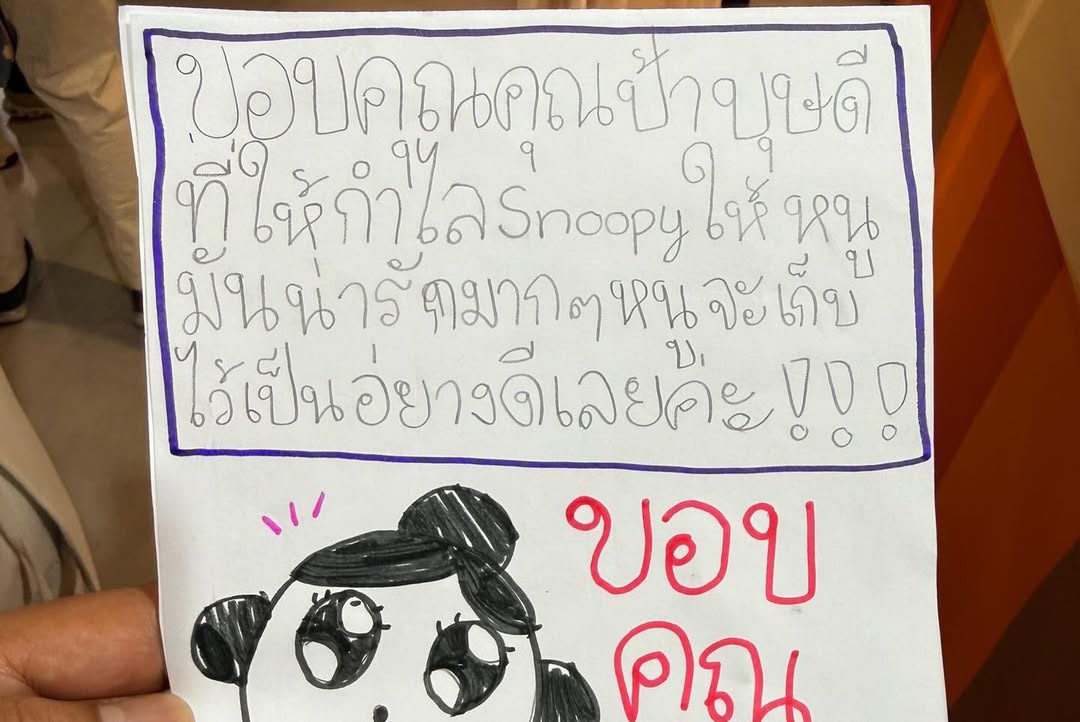 ขอบคุณคุณป้าบุษดี
ที่ให้กำไลSnoopyให้หนู
มันน่ารักมากๆหนูจะเก็บ
ไว้เป็นอย่างดีเลยค่ะ!!!
ขอบ
คุณ